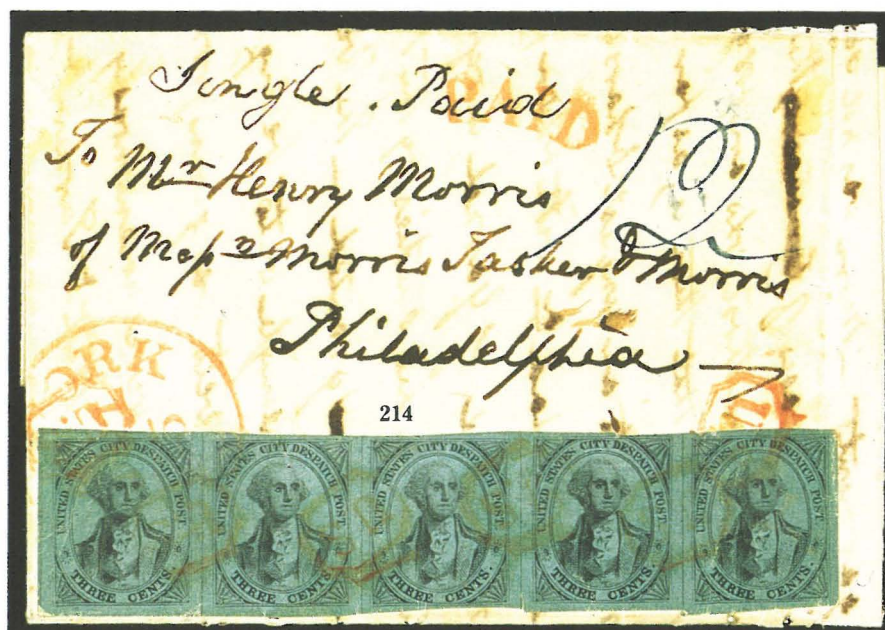 Single . Paid
PAID
To Mr Henry Morris
12
of Messrs Morris Tasker & Morris
Philadelphia
ORK
214
UNITED STATES CITY DESPATCH POST
THREE CENTS.
UNITED STATES CITY DESPATCH POST
THREE CENTS.
UNITED STATES CITY DESPATCH POST
THREE CENTS.
UNITED STATES CITY DESPATCH POST
THREE CENTS.
UNITED STATES CITY DESPATCH POST
THREE CENTS.